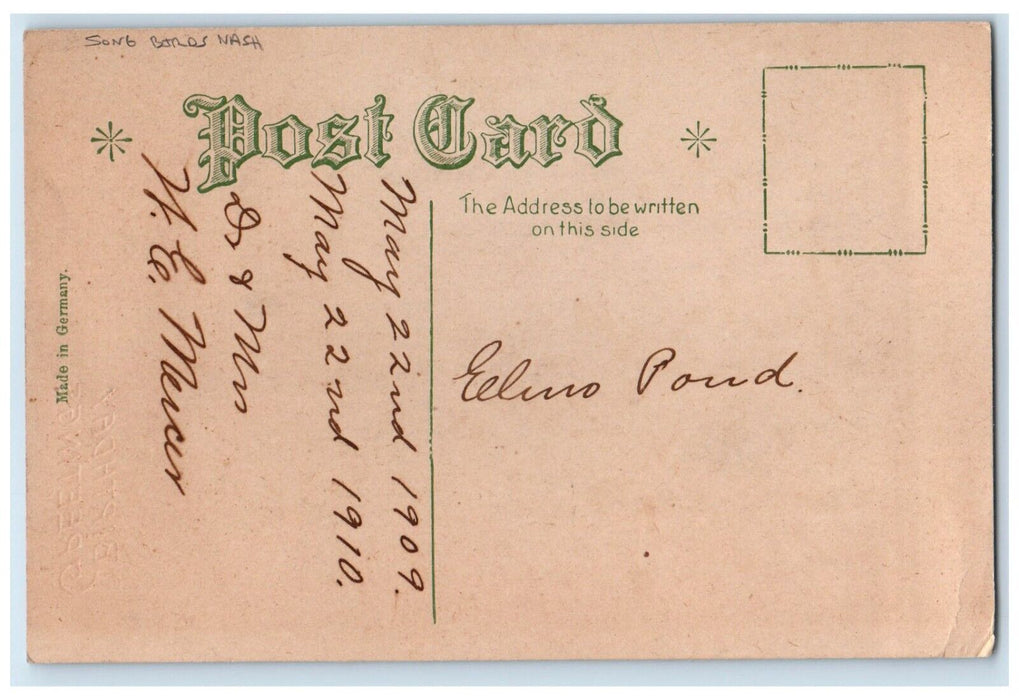 SONG BIRDS NASH
Post Card
The Address to be written
on this side
May 22nd 1909.
May 22nd 1910.
& Mrs
W. E. Mercer
Elmo Pond.
Made in Germany.
GREETINGS
BIRTHDAY